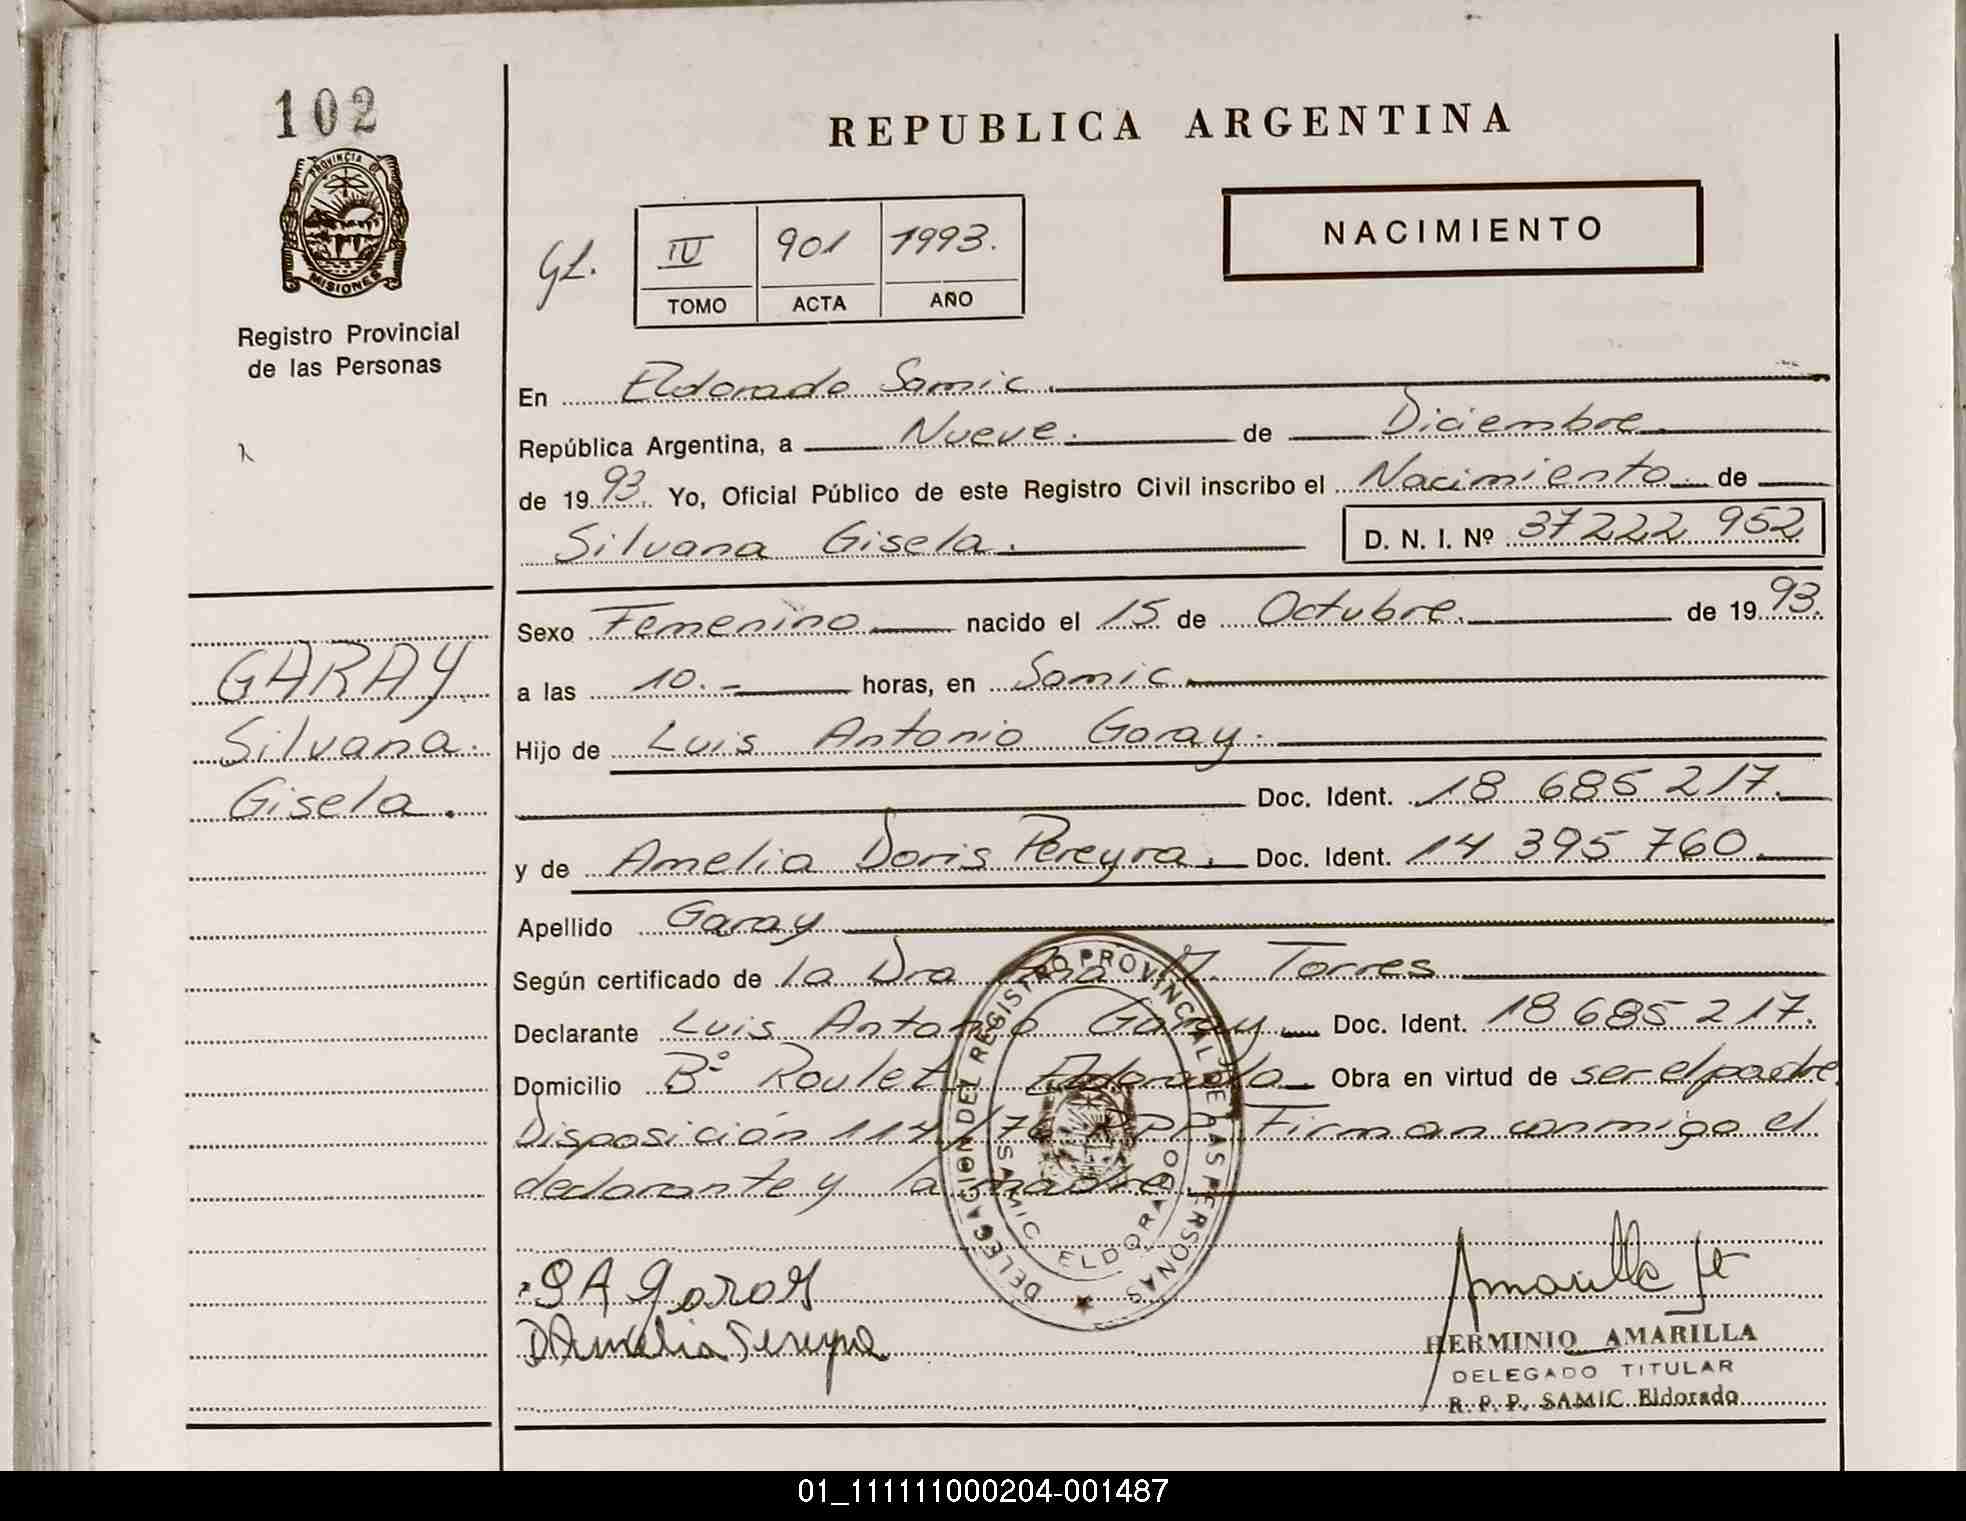 102
PROVINCIA DE
MISIONES
Registro Provincial
de las Personas
GARAY
Silvana
Gisela.
REPUBLICA ARGENTINA
NACIMIENTO
IV 901 1993.
TOMO ACTA AÑO
En Eldorado Samic.
República Argentina, a Nueve. de Diciembre.
de 1993. Yo, Oficial Público de este Registro Civil inscribo el Nacimiento de
Silvana Gisela. D. N. I. Nº 37222 952
Sexo Femenino nacido el 15 de Octubre. de 1993.
a las 10.- horas, en Samic
Hijo de Luis Antonio Garay.
Doc. Ident. 18 685 217.
y de Amelia Doris Pereyra. Doc. Ident. 14 395 760.
Apellido Garay
Según certificado de la Dra Ana M. Torres
Declarante Luis Antonio Garay. Doc. Ident. 18 685 217.
Domicilio Bº Roulet Eldorado Obra en virtud de ser el padre.
Disposición RPP. Firman conmigo el
declarante y la madre.
DELEGACION DEL REGISTRO PROVINCIAL DE LAS PERSONAS
SAMIC ELDORADO
HERMINIO AMARILLA
DELEGADO TITULAR
R. P. P. SAMIC Eldorado
01_111111000204-001487